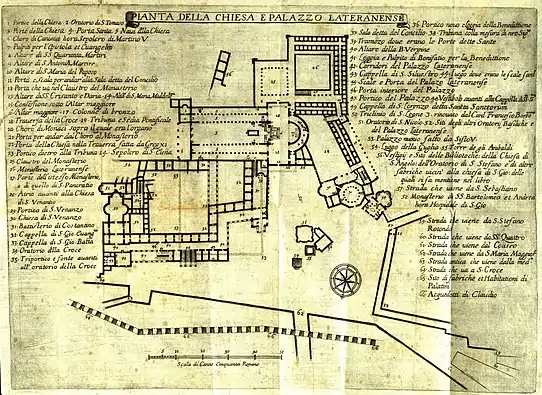 PIANTA DELLA CHIESA E PALAZZO LATERANENSE
1 Portico della Chiesa 2 Oratorio di S Tomaso
3 Porte della Chiesa 4 Porta Santa 5 Nave della Chiesa
6 Choro di Canonici hora Sepolcro di Martino V
7 Pulpiti per l'Epistola et Evangelio
8 Altare di SS Quaranta Martiri
9 Altare di S Antonio
10 Altare di S Maria del Riposo
11 Porta e scala per andar alla Sala detta del Concilio
12 Porta che va nel Claustro del Monasterio
13 Altare di SS Crisanto e Daria
15 Confessione sotto l'Altar maggiore
16 Altar maggiore 17 Colonne di bronzo
18 Traversa della Croce 19 Tribuna e Sedia Pontificale
20 Choro di Monaci sopra il quale era l'organo
21 Porta per andar dal Choro al Monasterio
22 Porta della Chiesa nella Traversa fatta da Greg XI
23 Portico dietro alla Tribuna 24 Sepolcro di S Elena
25 Claustro del Monasterio
26 Monasterio Lateranense
27 Parte dell'istesso Monasterio
e di quello di S Pancratio
28 Atrio avanti alla Chiesa
di S Venantio
29 Portico di S Venanzo
30 Chiesa di S Venanzo
31 Battisterio di Costantino
32 Cappella di S Gio Evang
33 Cappella di S Gio Batta
34 Oratorio della Croce
35 Triportico e fonte avanti
all'oratorio della Croce
36 Portico nuovo e loggia della Benedittione
39 Sala detta del Concilio
39 Tramezzo dove erano le Porte dette Sante
40 Altare della B Vergine
41 Loggia e Pulpito di Bonifatio per la Benedittione
42 Corridori del Palazzo Lateranense
43 Cappella di S Silvestro 44 luogo dove erano le scale Sante
45 Scale e Porta del Palazzo Lateranense
46 Porta interiore del Palazzo
47 Portico del Palazzo
49 Cappella di S Lorenzo detta Sancta Sanctorum
50 Triclinio di S Leone 3 rinovato dal Card Francesco Barb
51 Oratorio di S Nicolo 52 Siti degli altri Oratorij Basiliche e
del Palazzo lateranense
53 Palazzo nuovo fatto da Sisto V
54 Luogo della Guglia 55 Torre de gli Anibaldi
56 Vestigij e Siti delle Biblioteche della Chiesa di
S Angelo dell'Oratorio di S Stefano e di altre
fabriche vicin' alla chiesa di S Gio delle
quali si fa mentione nel libro
57 Strada che viene da S Sebastiano
58 Monasterio di SS Bartolomeo et Andrea
hora Hospidale di S Gio
59 Strada che viene da S Stefano
Rotondo
60 Strada che viene da SS Quattro
61 Strada che viene dal Coliseo
62 Strada che viene da S Maria Maggiore
63 Strada antica che viene dalla med
64 Strada che va a S Croce
65 Sito di fabriche et Habitationi di
Palatini
66 Acquedotti di Claudio
Scala di Canne Cinquanta Romane